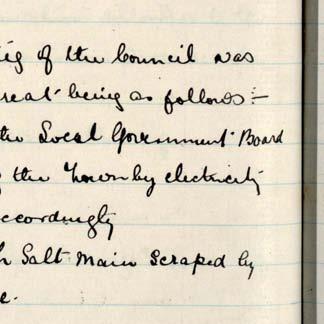 of the Council was
being as follows:-
the Local Government Board
the Town by electricity
accordingly
Salt Main Scraped by